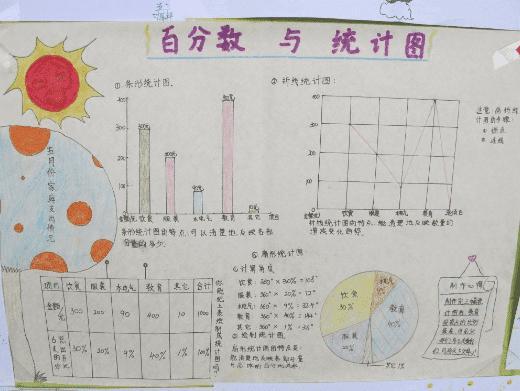 百分数 与 统计图
五月份家庭支出情况
①条形统计图.
400
300
200
100
0
300元
200元
90元
400元
10元
金额元 饮食 服装 水电气 教育 其它 项目
条形统计图的特点,可以清楚地反映各部
分数量的多少.
②折线统计图:
400
300
200
100
0
饮食 服装 水电气 教育
折线统计图的特点,能清楚地反映数量的
增减变化趋势.
①描点
②连线
③扇形统计图.
①计算角度
饮食:360°×30%=108°
服装:360°×20%=72°
水电气:360°×9%=32.4°
教育:360°×40%=144°
其它:360°×1%=3.6°
②绘制统计图.
扇形统计图的特点是:
饮食
30%
服装
20%
水电气
9%
教育
40%
其它1%
项目 饮食 服装 水电气 教育 其它 合计
金额元 300 200 90 400 10 1000
30% 20% 9% 40% 1% 100%
制作心得